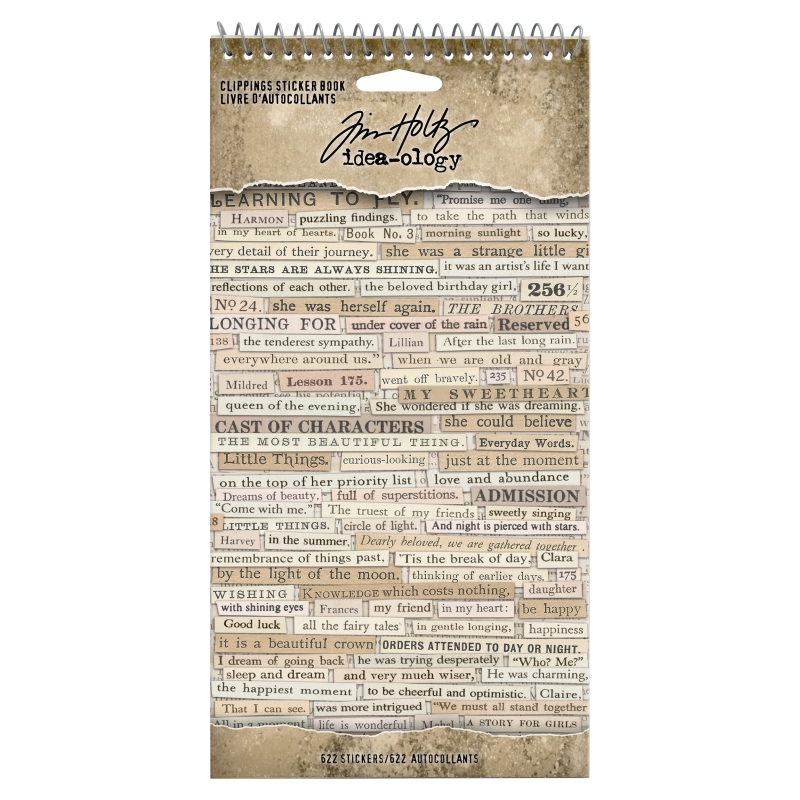 CLIPPINGS STICKER BOOK
LIVRE D'AUTOCOLLANTS
Tim Holtz
idea-ology
LEARNING TO FLY. "Promise me one thing,
HARMON puzzling findings. to take the path that winds
in my heart of hearts. Book No. 3 morning sunlight so lucky,
very detail of their journey. she was a strange little gi
HE STARS ARE ALWAYS SHINING. it was an artist's life I want
reflections of each other. the beloved birthday girl, 256½
No 24. she was herself again. THE BROTHERS
LONGING FOR under cover of the rain Reserved 56
138 the tenderest sympathy. Lillian After the last long rain.
everywhere around us." when we are old and gray
Mildred Lesson 175. went off bravely. 235 No 42.
MY SWEETHEART
queen of the evening, She wondered if she was dreaming.
CAST OF CHARACTERS she could believe
THE MOST BEAUTIFUL THING. Everyday Words.
Little Things. curious-looking just at the moment
on the top of her priority list love and abundance
Dreams of beauty, full of superstitions. ADMISSION
"Come with me." The truest of my friends sweetly singing
8 LITTLE THINGS. circle of light. And night is pierced with stars.
Harvey in the summer, Dearly beloved, we are gathered together
remembrance of things past, 'Tis the break of day, Clara
by the light of the moon. thinking of earlier days, 175
WISHING KNOWLEDGE which costs nothing, daughter
with shining eyes Frances my friend in my heart: be happy
Good luck all the fairy tales in gentle longing, happiness
it is a beautiful crown ORDERS ATTENDED TO DAY OR NIGHT.
I dream of going back he was trying desperately "Who? Me?"
sleep and dream and very much wiser, He was charming,
the happiest moment to be cheerful and optimistic. Claire,
That I can see. was more intrigued "We must all stand together
All in a moment life is wonderful Mabel A STORY FOR GIRLS
622 STICKERS/622 AUTOCOLLANTS